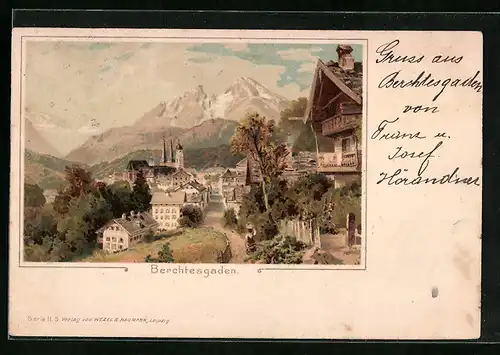 Gruss aus
Berchtesgaden
von
Franz u.
Josef
Hörandner
Berchtesgaden.
Serie II. 5. Verlag von WEZEL & NAUMANN, Leipzig.